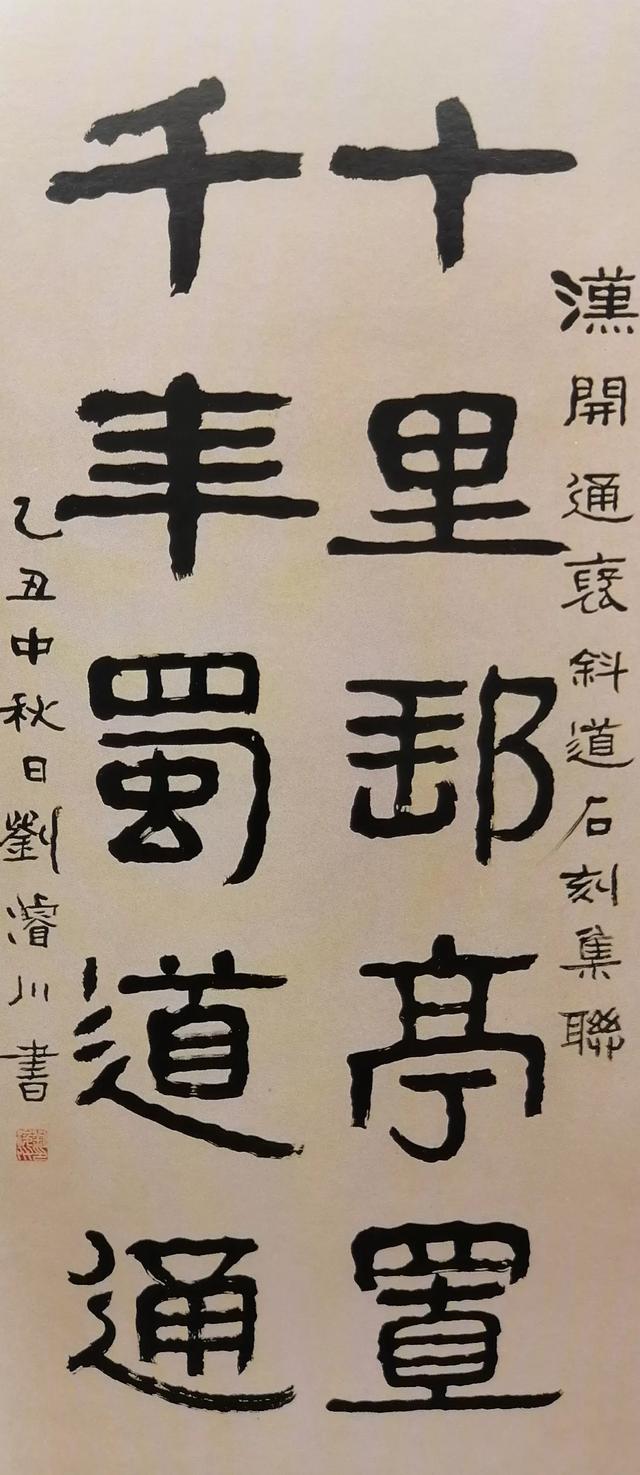 漢開通褒斜道石刻集聯
十里郵亭置
千年蜀道通
乙丑中秋日劉濬川書